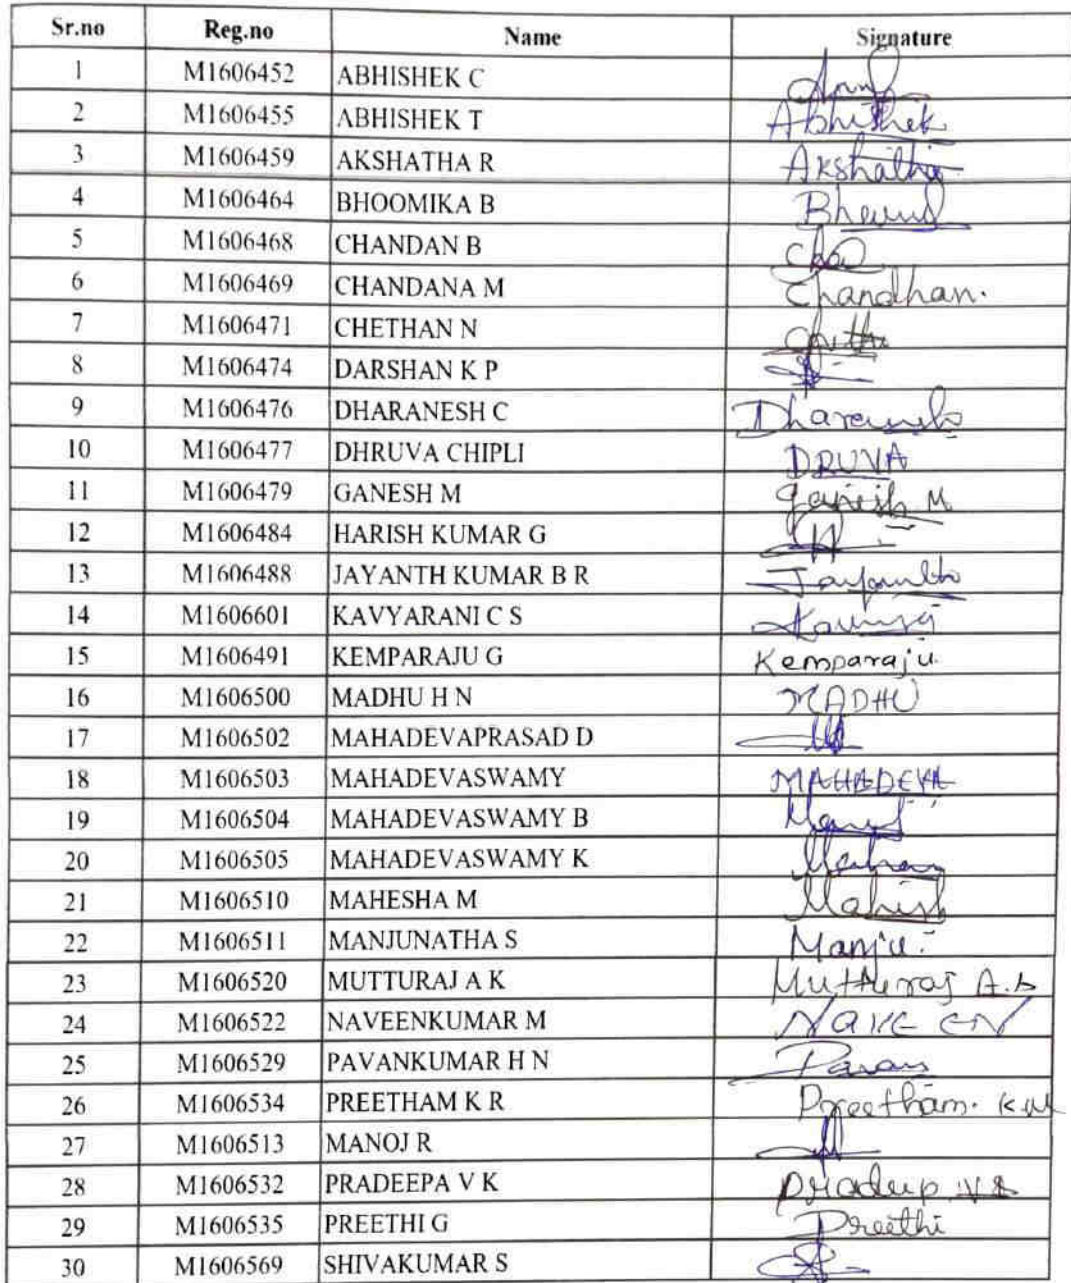 Sr.no Reg.no Name Signature
1 M1606452 ABHISHEK C
2 M1606455 ABHISHEK T Abhishek
3 M1606459 AKSHATHA R Akshatha
4 M1606464 BHOOMIKA B
5 M1606468 CHANDAN B
6 M1606469 CHANDANA M Chandhan.
7 M1606471 CHETHAN N
8 M1606474 DARSHAN K P
9 M1606476 DHARANESH C
10 M1606477 DHRUVA CHIPLI DRUVA
11 M1606479 GANESH M Ganesh M
12 M1606484 HARISH KUMAR G
13 M1606488 JAYANTH KUMAR B R
14 M1606601 KAVYARANI C S
15 M1606491 KEMPARAJU G Kemparaju.
16 M1606500 MADHU H N MADHU
17 M1606502 MAHADEVAPRASAD D
18 M1606503 MAHADEVASWAMY MAHADEVA
19 M1606504 MAHADEVASWAMY B
20 M1606505 MAHADEVASWAMY K
21 M1606510 MAHESHA M
22 M1606511 MANJUNATHA S Manju.
23 M1606520 MUTTURAJ A K Mutturaj
24 M1606522 NAVEENKUMAR M NAVEEN
25 M1606529 PAVANKUMAR H N Pavan
26 M1606534 PREETHAM K R Preetham.
27 M1606513 MANOJ R
28 M1606532 PRADEEPA V K Pradeep
29 M1606535 PREETHI G Preethi
30 M1606569 SHIVAKUMAR S